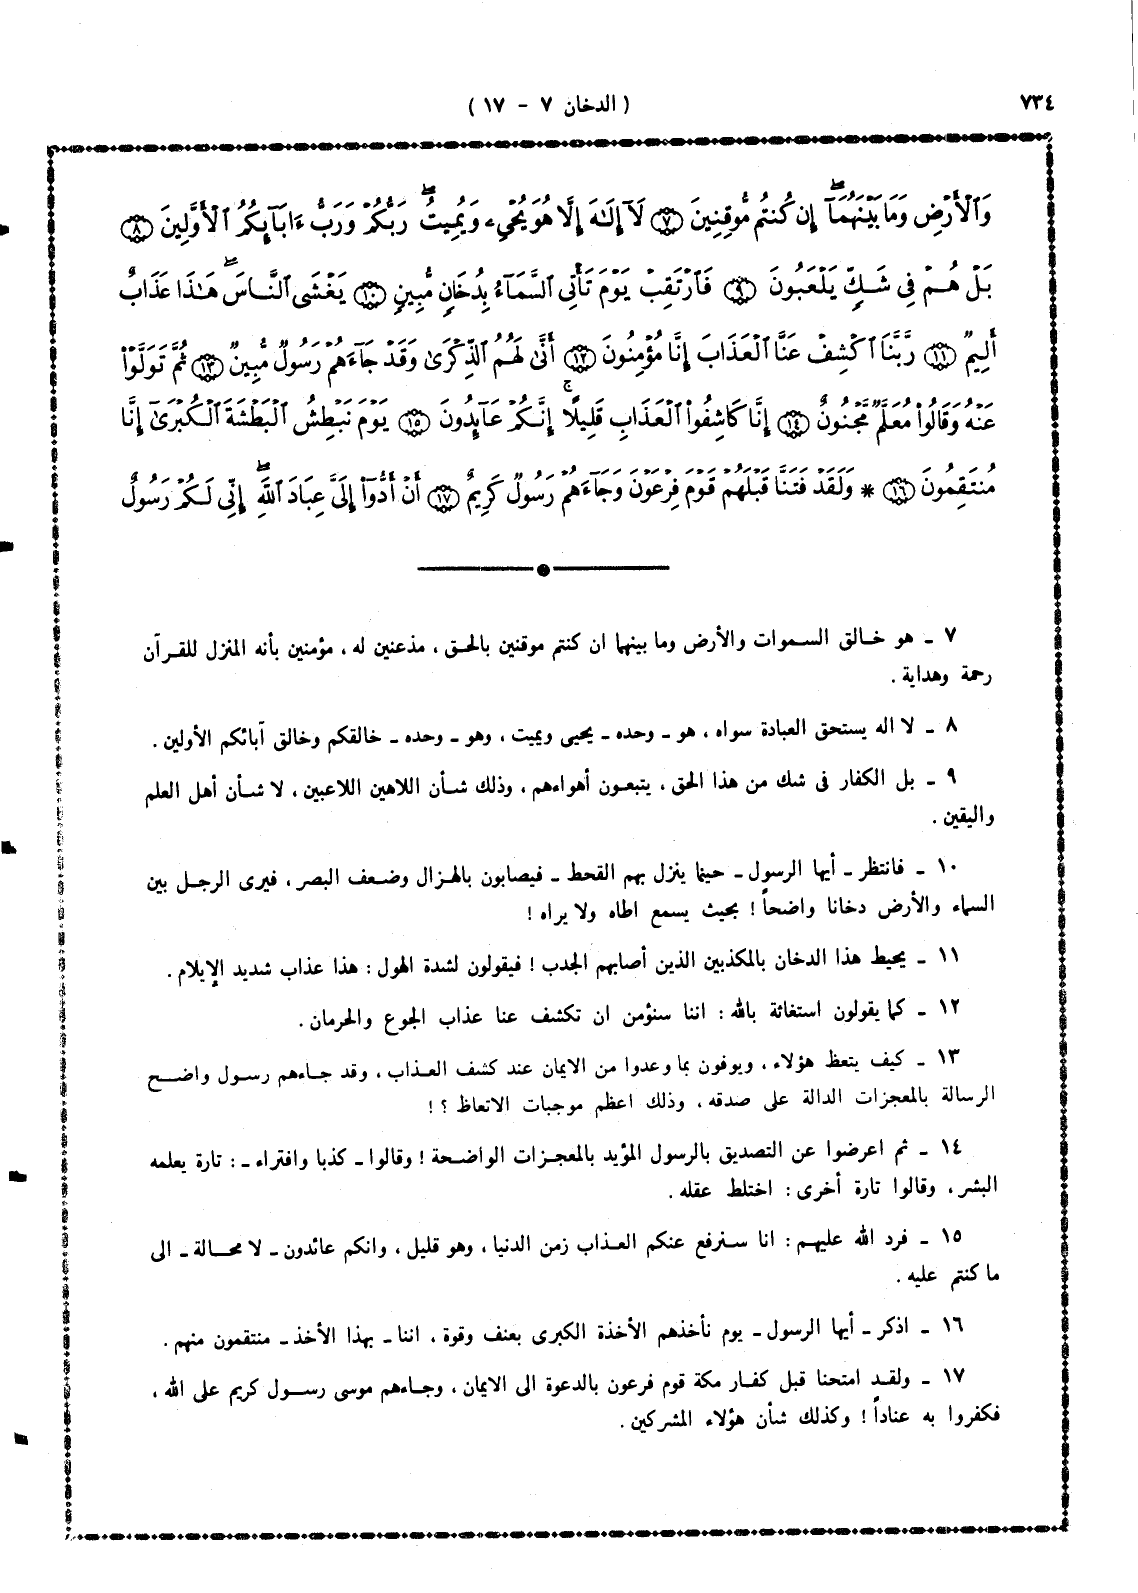 ٧٣٤
( الدخان ٧ – ١٧ )
وَٱلْأَرْضِ وَمَا بَيْنَهُمَآ ۖ إِن كُنتُم مُّوقِنِينَ ۝٧ لَآ إِلَٰهَ إِلَّا هُوَ يُحْيِۦ وَيُمِيتُ ۖ رَبُّكُمْ وَرَبُّ ءَابَآئِكُمُ ٱلْأَوَّلِينَ ۝٨
بَلْ هُمْ فِى شَكٍّ يَلْعَبُونَ ۝٩ فَٱرْتَقِبْ يَوْمَ تَأْتِى ٱلسَّمَآءُ بِدُخَانٍ مُّبِينٍ ۝١٠ يَغْشَى ٱلنَّاسَ ۖ هَٰذَا عَذَابٌ
أَلِيمٌ ۝١١ رَّبَّنَا ٱكْشِفْ عَنَّا ٱلْعَذَابَ إِنَّا مُؤْمِنُونَ ۝١٢ أَنَّىٰ لَهُمُ ٱلذِّكْرَىٰ وَقَدْ جَآءَهُمْ رَسُولٌ مُّبِينٌ ۝١٣ ثُمَّ تَوَلَّوْا۟
عَنْهُ وَقَالُوا۟ مُعَلَّمٌ مَّجْنُونٌ ۝١٤ إِنَّا كَاشِفُوا۟ ٱلْعَذَابِ قَلِيلًا ۚ إِنَّكُمْ عَآئِدُونَ ۝١٥ يَوْمَ نَبْطِشُ ٱلْبَطْشَةَ ٱلْكُبْرَىٰٓ إِنَّا
مُنتَقِمُونَ ۝١٦ * وَلَقَدْ فَتَنَّا قَبْلَهُمْ قَوْمَ فِرْعَوْنَ وَجَآءَهُمْ رَسُولٌ كَرِيمٌ ۝١٧ أَنْ أَدُّوٓا۟ إِلَىَّ عِبَادَ ٱللَّهِ ۖ إِنِّى لَكُمْ رَسُولٌ
٧ ـ هو خالق السموات والأرض وما بينهما ان كنتم موقنين بالحق ، مذعنين له ، مؤمنين بأنه المنزل للقرآن
رحمة وهداية .
٨ ـ لا اله يستحق العبادة سواه ، هو ـ وحده ـ يحيى ويميت ، وهو ـ وحده ـ خالقكم وخالق آبائكم الأولين .
٩ ـ بل الكفار فى شك من هذا الحق ، يتبعون أهواءهم ، وذلك شأن اللاهين اللاعبين ، لا شأن أهل العلم
واليقين .
١٠ ـ فانتظر ـ أيها الرسول ـ حينما ينزل بهم القحط ـ فيصابون بالهزال وضعف البصر ، فيرى الرجل بين
السماء والأرض دخانا واضحاً ! بحيث يسمع اطاه ولا يراه !
١١ ـ يحيط هذا الدخان بالمكذبين الذين أصابهم الجدب ! فيقولون لشدة الهول : هذا عذاب شديد الإيلام .
١٢ ـ كما يقولون استغاثة بالله : اننا سنؤمن ان تكشف عنا عذاب الجوع والحرمان .
١٣ ـ كيف يتعظ هؤلاء ، ويوفون بما وعدوا من الايمان عند كشف العذاب ، وقد جاءهم رسول واضح
الرسالة بالمعجزات الدالة على صدقه ، وذلك اعظم موجبات الاتعاظ ؟ !
١٤ ـ ثم اعرضوا عن التصديق بالرسول المؤيد بالمعجزات الواضحة ! وقالوا ـ كذبا وافتراء ـ : تارة يعلمه
البشر ، وقالوا تارة أخرى : اختلط عقله .
١٥ ـ فرد الله عليهم : انا سنرفع عنكم العذاب زمن الدنيا ، وهو قليل ، وانكم عائدون ـ لا محالة ـ الى
ما كنتم عليه .
١٦ ـ اذكر ـ أيها الرسول ـ يوم نأخذهم الأخذة الكبرى بعنف وقوة ، اننا ـ بهذا الأخذ ـ منتقمون منهم .
١٧ ـ ولقد امتحنا قبل كفار مكة قوم فرعون بالدعوة الى الايمان ، وجاءهم موسى رسول كريم على الله ،
فكفروا به عناداً ! وكذلك شأن هؤلاء المشركين .